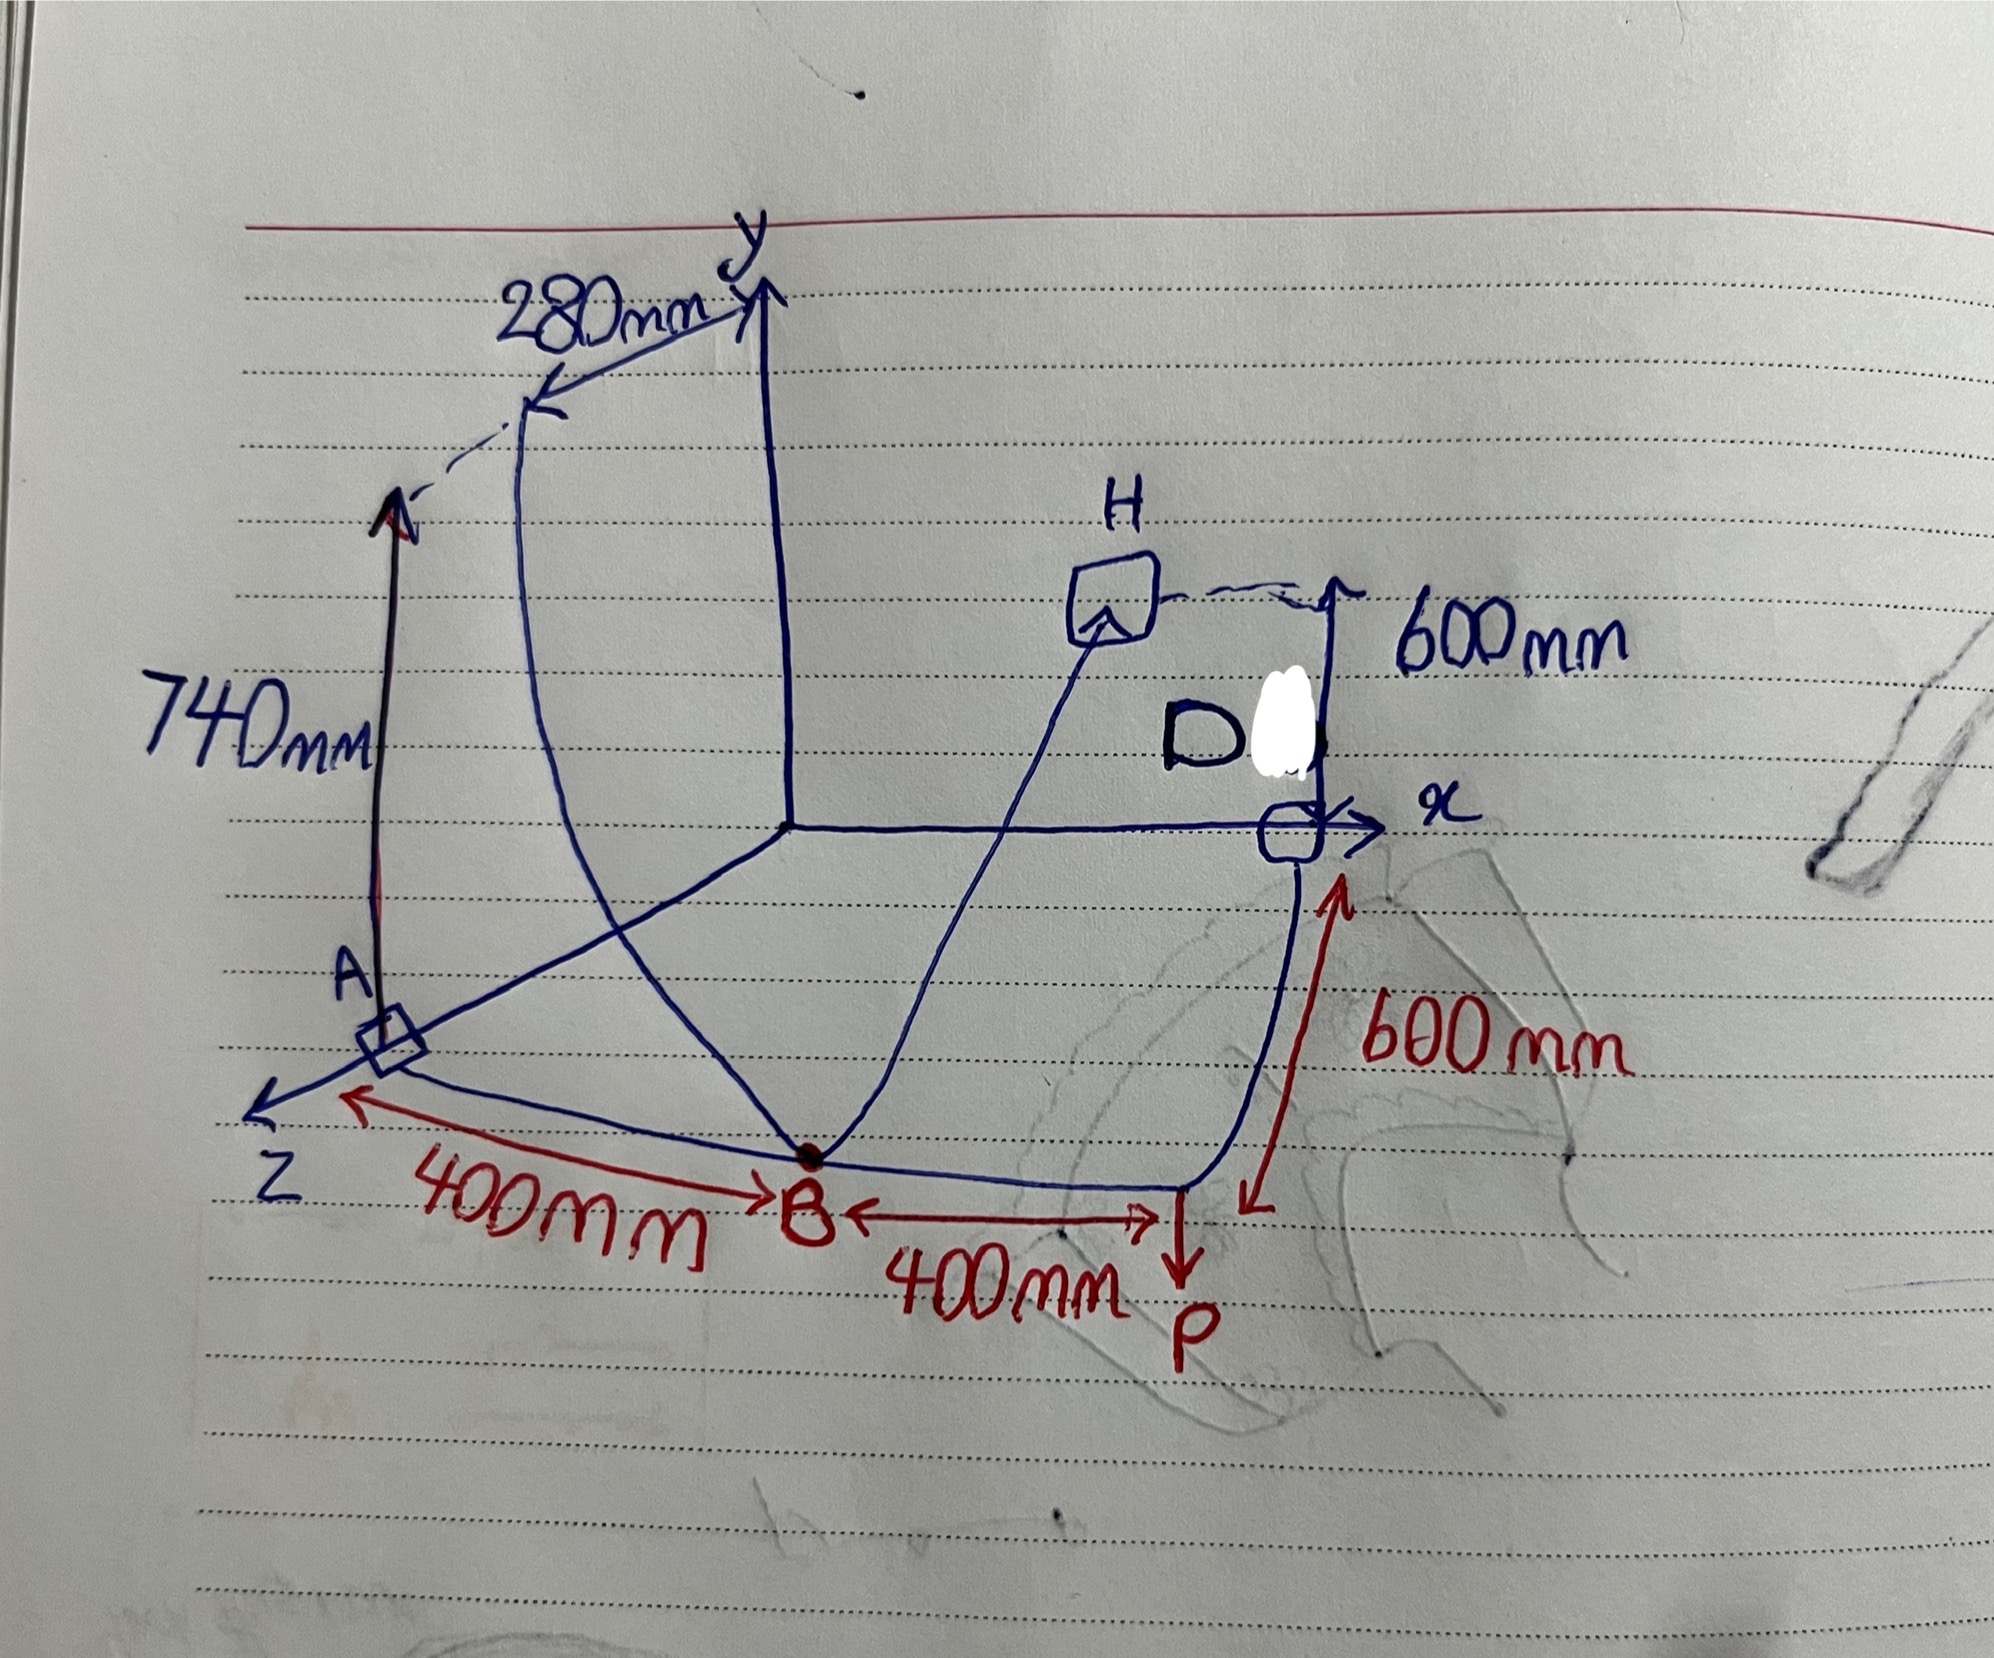 y
280mm
H
600mm
740mm
D
x
A
600mm
z
400mm
B
400mm
P